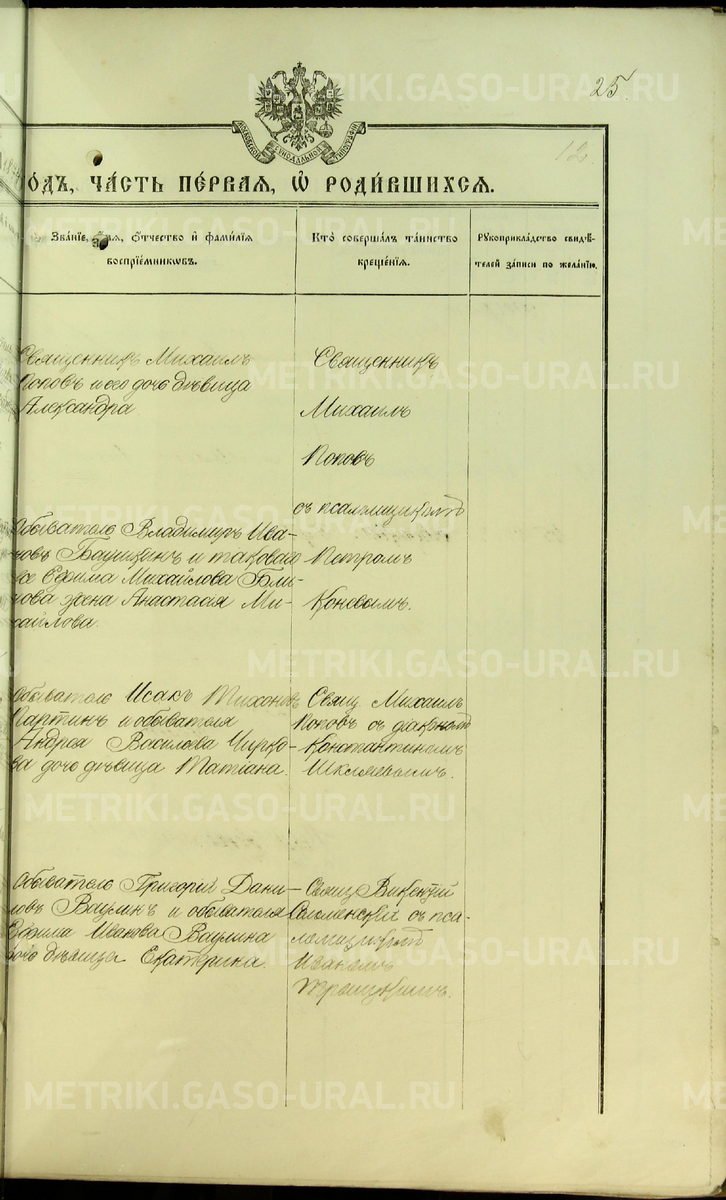 25.
12.
МОСКОВСКОЙ СѴНОДАЛЬНОЙ ТИПОГРАФІИ
ОДЪ, ЧАСТЬ ПЕРВАЯ, Ѡ РОДИВШИХСЯ.
Званіе, имя, отчество и фамилія
воспріемниковъ.
Кто совершалъ таинство
крещенія.
Рукоприкладство свидѣ-
телей записи по желанію.
Священникъ Михаилъ
Поповъ и его дочь дѣвица
Александра
Священникъ
Михаилъ
Поповъ
съ псаломщикомъ
Петромъ
Обыватель Владимиръ Ива-
новъ и таковаго
же Ефима Михайлова Бли-
нова жена Анастасія Ми-
хайлова.
Обыватель Исакъ Тихоновъ
Партинъ и обывателя
Андрея Василова Чирко-
ва дочь дѣвица Татіана.
Свящ. Михаилъ
Поповъ съ діакономъ
Константиномъ
Шкляевымъ.
Обыватель Григорій Дани-
ловъ Ваулинъ и обывателя
Ефима Иванова Ваулина
дочь дѣвица Екатерина.
Свящ. Викентій
Смоленскій съ пса-
ломщикомъ
Иваномъ
Троицкимъ.
METRIKI.GASO-URAL.RU